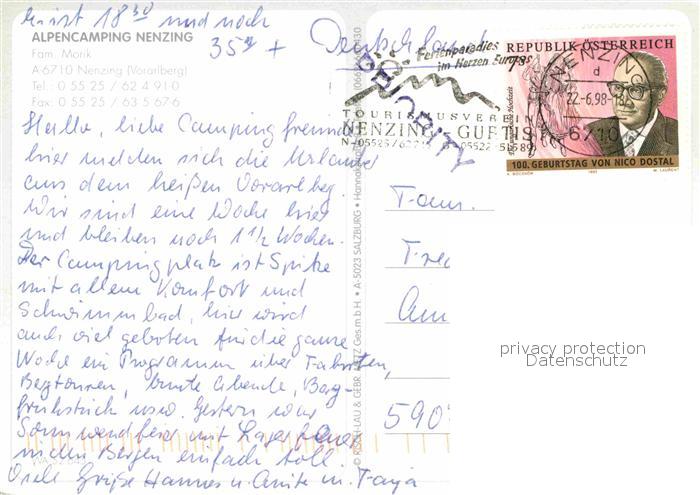 es ist 18 30 und noch
35° + Deutschland
ALPENCAMPING NENZING
Fam. Morik
A-6710 Nenzing (Vorarlberg)
Tel.: 0 55 25 / 62 4 91-0
Fax: 0 55 25 / 63 5 67-6
Hallo, liebe Campingfreunde
hier melden sich die Urlauber
aus dem heißen Vorarlberg.
Wir sind eine Woche hier
und bleiben noch 1 1/2 Wochen.
Der Campingplatz ist Spitze
mit allem Komfort und
Schwimmbad, hier wird
auch viel geboten für die ganze
Woche ein Programm über Fahrten,
Bergtouren, bunte Abende, Berg-
frühstück usw. Gestern war
Sonnwendfeier mit Lagerfeuer
in den Bergen einfach toll.
Viele Grüße Hannes u. Anita m. Tanja
PRIORITY
Ferienparadies
im Herzen Europas
TOURISMUSVEREIN
NENZING - GURTIS
REPUBLIK ÖSTERREICH
7S
NENZING
d
22.-6.98-18
6710
100. GEBURTSTAG VON NICO DOSTAL
1995
W. LAURENT
A-5023 SALZBURG
Fam.
590
privacy protection
Datenschutz